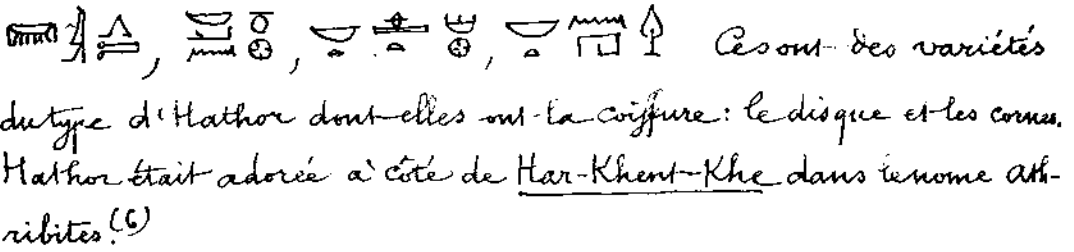 , , , Ce sont des variétés
du type d'Hathor dont elles ont la coiffure : le disque et les cornes.
Hathor était adorée à côté de Har-Khent-Khe dans le nome Ath-
ribites.(6)